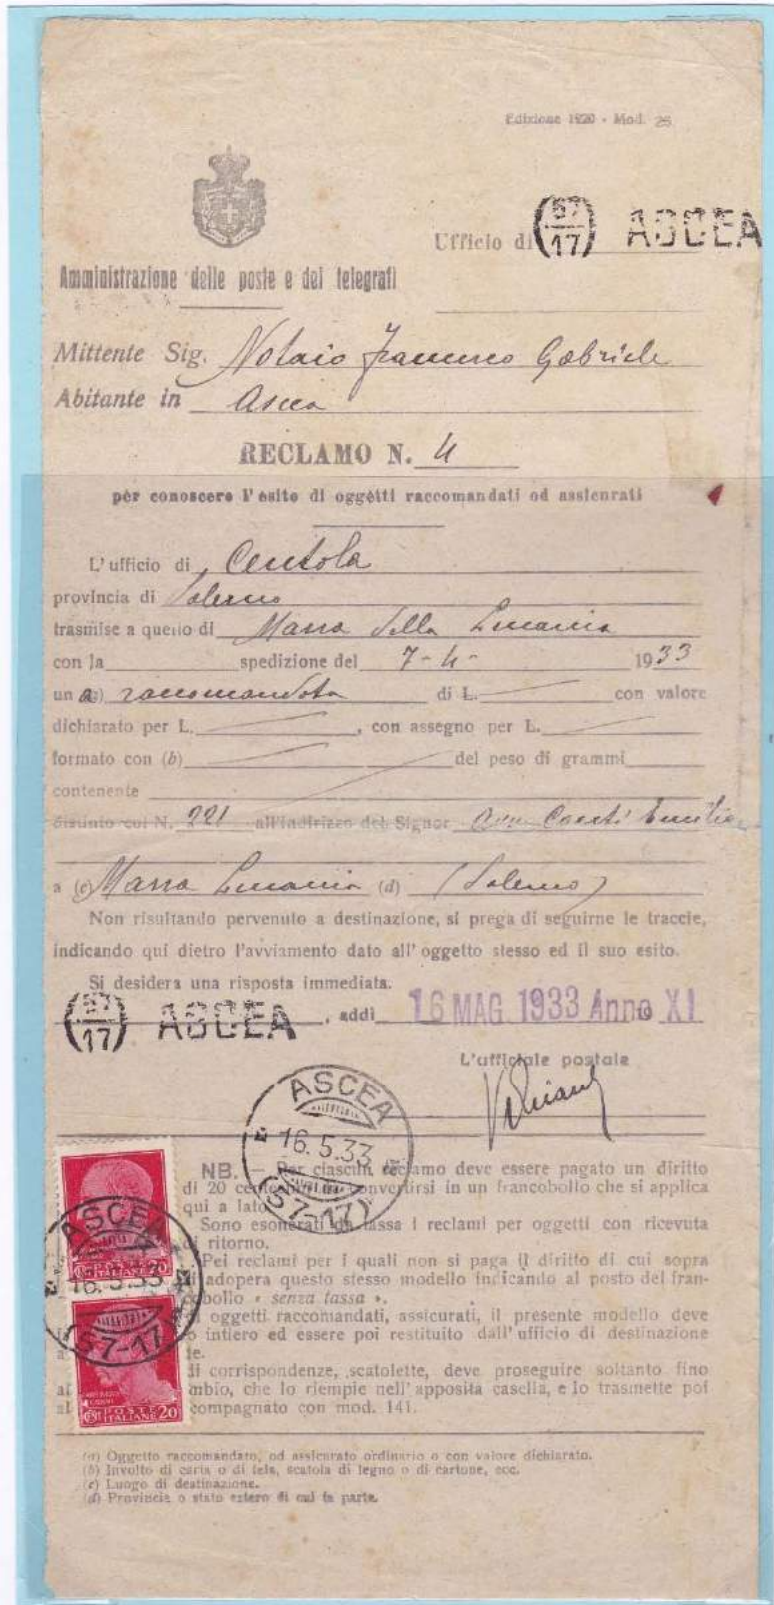 Edizione 1920 - Mod. 25
Ufficio di (57/17) ASCEA
Amministrazione delle poste e dei telegrafi
Mittente Sig. Notaio Francesco Gabriele
Abitante in Ascea
RECLAMO N. 4
per conoscere l'esito di oggetti raccomandati od assicurati
L'ufficio di Centola
provincia di Salerno
trasmise a quello di Massa della Lucania
con la spedizione del 7-4- 1933
un (a) raccomandata di L. con valore
dichiarato per L. , con assegno per L.
formato con (b) del peso di grammi
contenente
distinto col N. 221 all'indirizzo del Signor Conti Emilio
a (c) Massa Lucania (d) (Salerno)
Non risultando pervenuto a destinazione, si prega di seguirne le traccie,
indicando qui dietro l'avviamento dato all'oggetto stesso ed il suo esito.
Si desidera una risposta immediata.
(57/17) ASCEA, addì 16 MAG 1933 Anno XI
L'ufficiale postale
ASCEA
16.5.33
(57-17)
NB. — Per ciascun reclamo deve essere pagato un diritto
di 20 centesimi da convertirsi in un francobollo che si applica
qui a lato.
Sono esonerati da tassa i reclami per oggetti con ricevuta
di ritorno.
Pei reclami per i quali non si paga il diritto di cui sopra
si adopera questo stesso modello indicando al posto del fran-
cobollo « senza tassa ».
oggetti raccomandati, assicurati, il presente modello deve
intiero ed essere poi restituito dall'ufficio di destinazione
di corrispondenze, scatolette, deve proseguire soltanto fino
che lo riempie nell'apposita casella, e lo trasmette poi
compagnato con mod. 141.
ASCEA
16.5.33
(57-17)
POSTE
ITALIANE 20
(a) Oggetto raccomandato, od assicurato ordinario o con valore dichiarato.
(b) Involto di carta o di tela, scatola di legno o di cartone, ecc.
(c) Luogo di destinazione.
(d) Provincia o stato estero di cui fa parte.